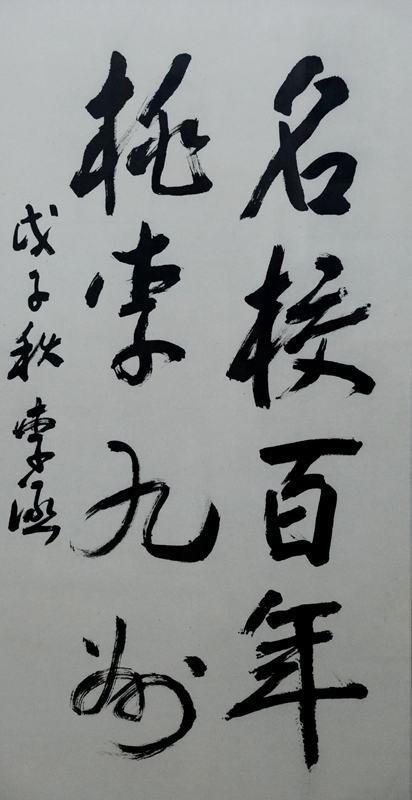 名校百年
桃李九州
戊子秋 李涵